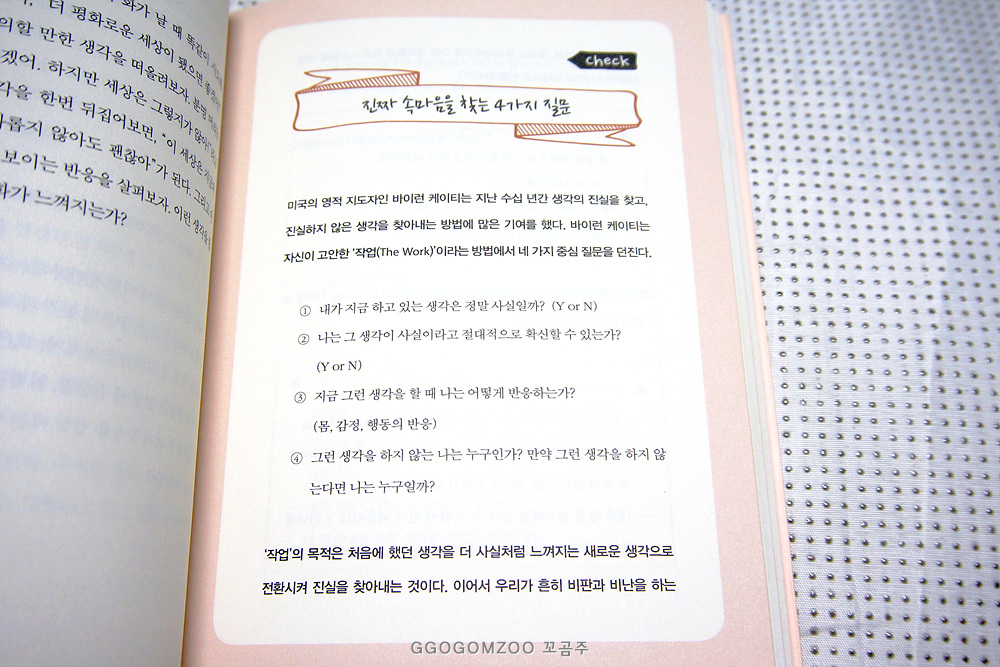 화가 날 때 똑같이
"더 평화로운 세상이 됐으면 좋겠
의할 만한 생각을 떠올려보자. 분명
겠어. 하지만 세상은 그렇지가 않아"
각을 한번 뒤집어보면, "이 세상은
롭지 않아도 괜찮아"가 된다. 그리고
보이는 반응을 살펴보자. 이런 생각을
화가 느껴지는가?
check
진짜 속마음을 찾는 4가지 질문
미국의 영적 지도자인 바이런 케이티는 지난 수십 년간 생각의 진실을 찾고,
진실하지 않은 생각을 찾아내는 방법에 많은 기여를 했다. 바이런 케이티는
자신이 고안한 '작업(The Work)'이라는 방법에서 네 가지 중심 질문을 던진다.
① 내가 지금 하고 있는 생각은 정말 사실일까? (Y or N)
② 나는 그 생각이 사실이라고 절대적으로 확신할 수 있는가?
(Y or N)
③ 지금 그런 생각을 할 때 나는 어떻게 반응하는가?
(몸, 감정, 행동의 반응)
④ 그런 생각을 하지 않는 나는 누구인가? 만약 그런 생각을 하지 않
는다면 나는 누구일까?
'작업'의 목적은 처음에 했던 생각을 더 사실처럼 느껴지는 새로운 생각으로
전환시켜 진실을 찾아내는 것이다. 이어서 우리가 흔히 비판과 비난을 하는
GGOGOMZOO 꼬곰주